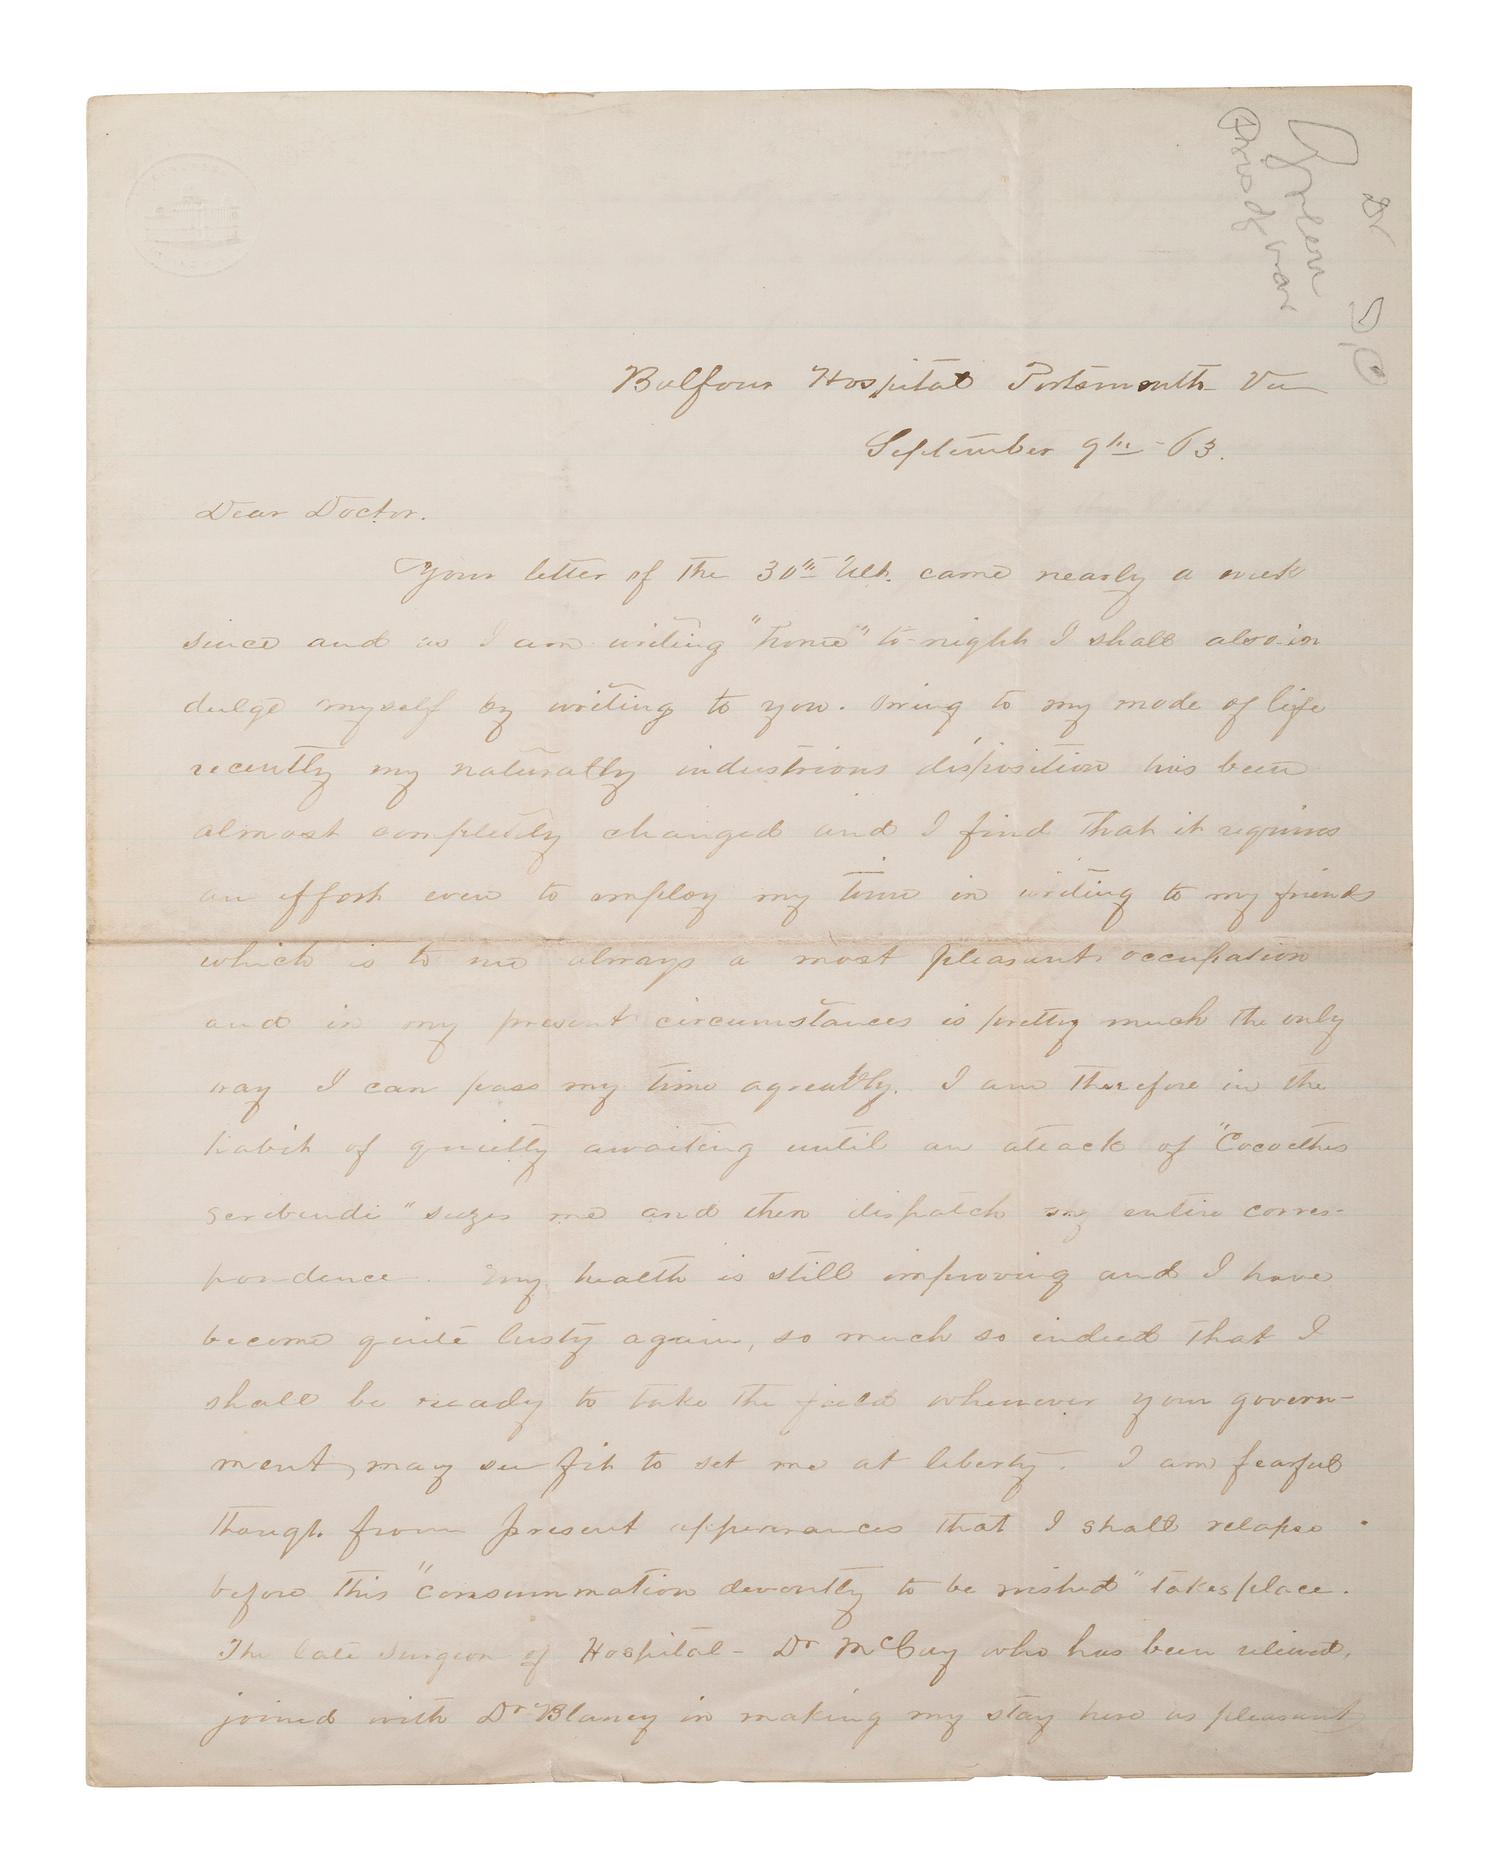 Dr
D.C.
Green
Pris of war
Balfour Hospital Portsmouth Va
September 9th -63.
Dear Doctor.
Your letter of the 30th Ult. came nearly a week
since and as I am writing "home" to-night I shall also in
dulge myself by writing to you. Owing to my mode of life
recently my naturally industrious disposition has been
almost completely changed and I find that it requires
an effort even to employ my time in writing to my friends
which is to me always a most pleasant occupation
and in my present circumstances is pretty much the only
way I can pass my time agreeably. I am therefore in the
habit of quietly awaiting until an attack of "Cocoethes
scribendi" seizes me and then dispatch my entire corres-
pondence. My health is still improving and I have
become quite lusty again, so much so indeed that I
shall be ready to take the field whenever your govern-
ment, may see fit to set me at liberty. I am fearful
though from present apperarances that I shall relapse
before this "consummation devoutly to be wished" takes place.
The late Surgeon of Hospital - Dr McCay who has been relieved,
joined with Dr Blaney in making my stay here as pleasant